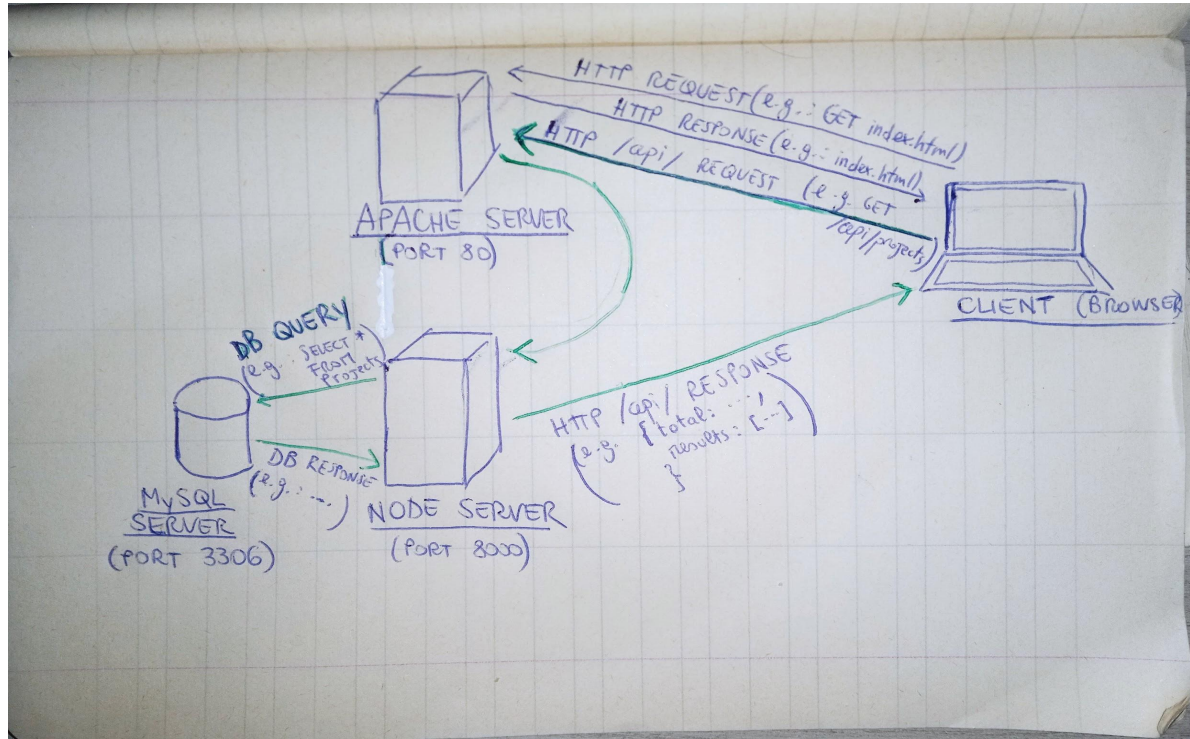 HTTP REQUEST (e.g.: GET index.html)
HTTP RESPONSE (e.g.: index.html)
HTTP /api/ REQUEST (e.g. GET
/api/projects)
APACHE SERVER
(PORT 80)
CLIENT (BROWSER)
DB QUERY
(e.g.: SELECT *
FROM
projects)
HTTP /api/ RESPONSE
(e.g. { total: ...,
results: [...]
}
)
DB RESPONSE
(e.g.: ...
)
MySQL
SERVER
(PORT 3306)
NODE SERVER
(PORT 8000)